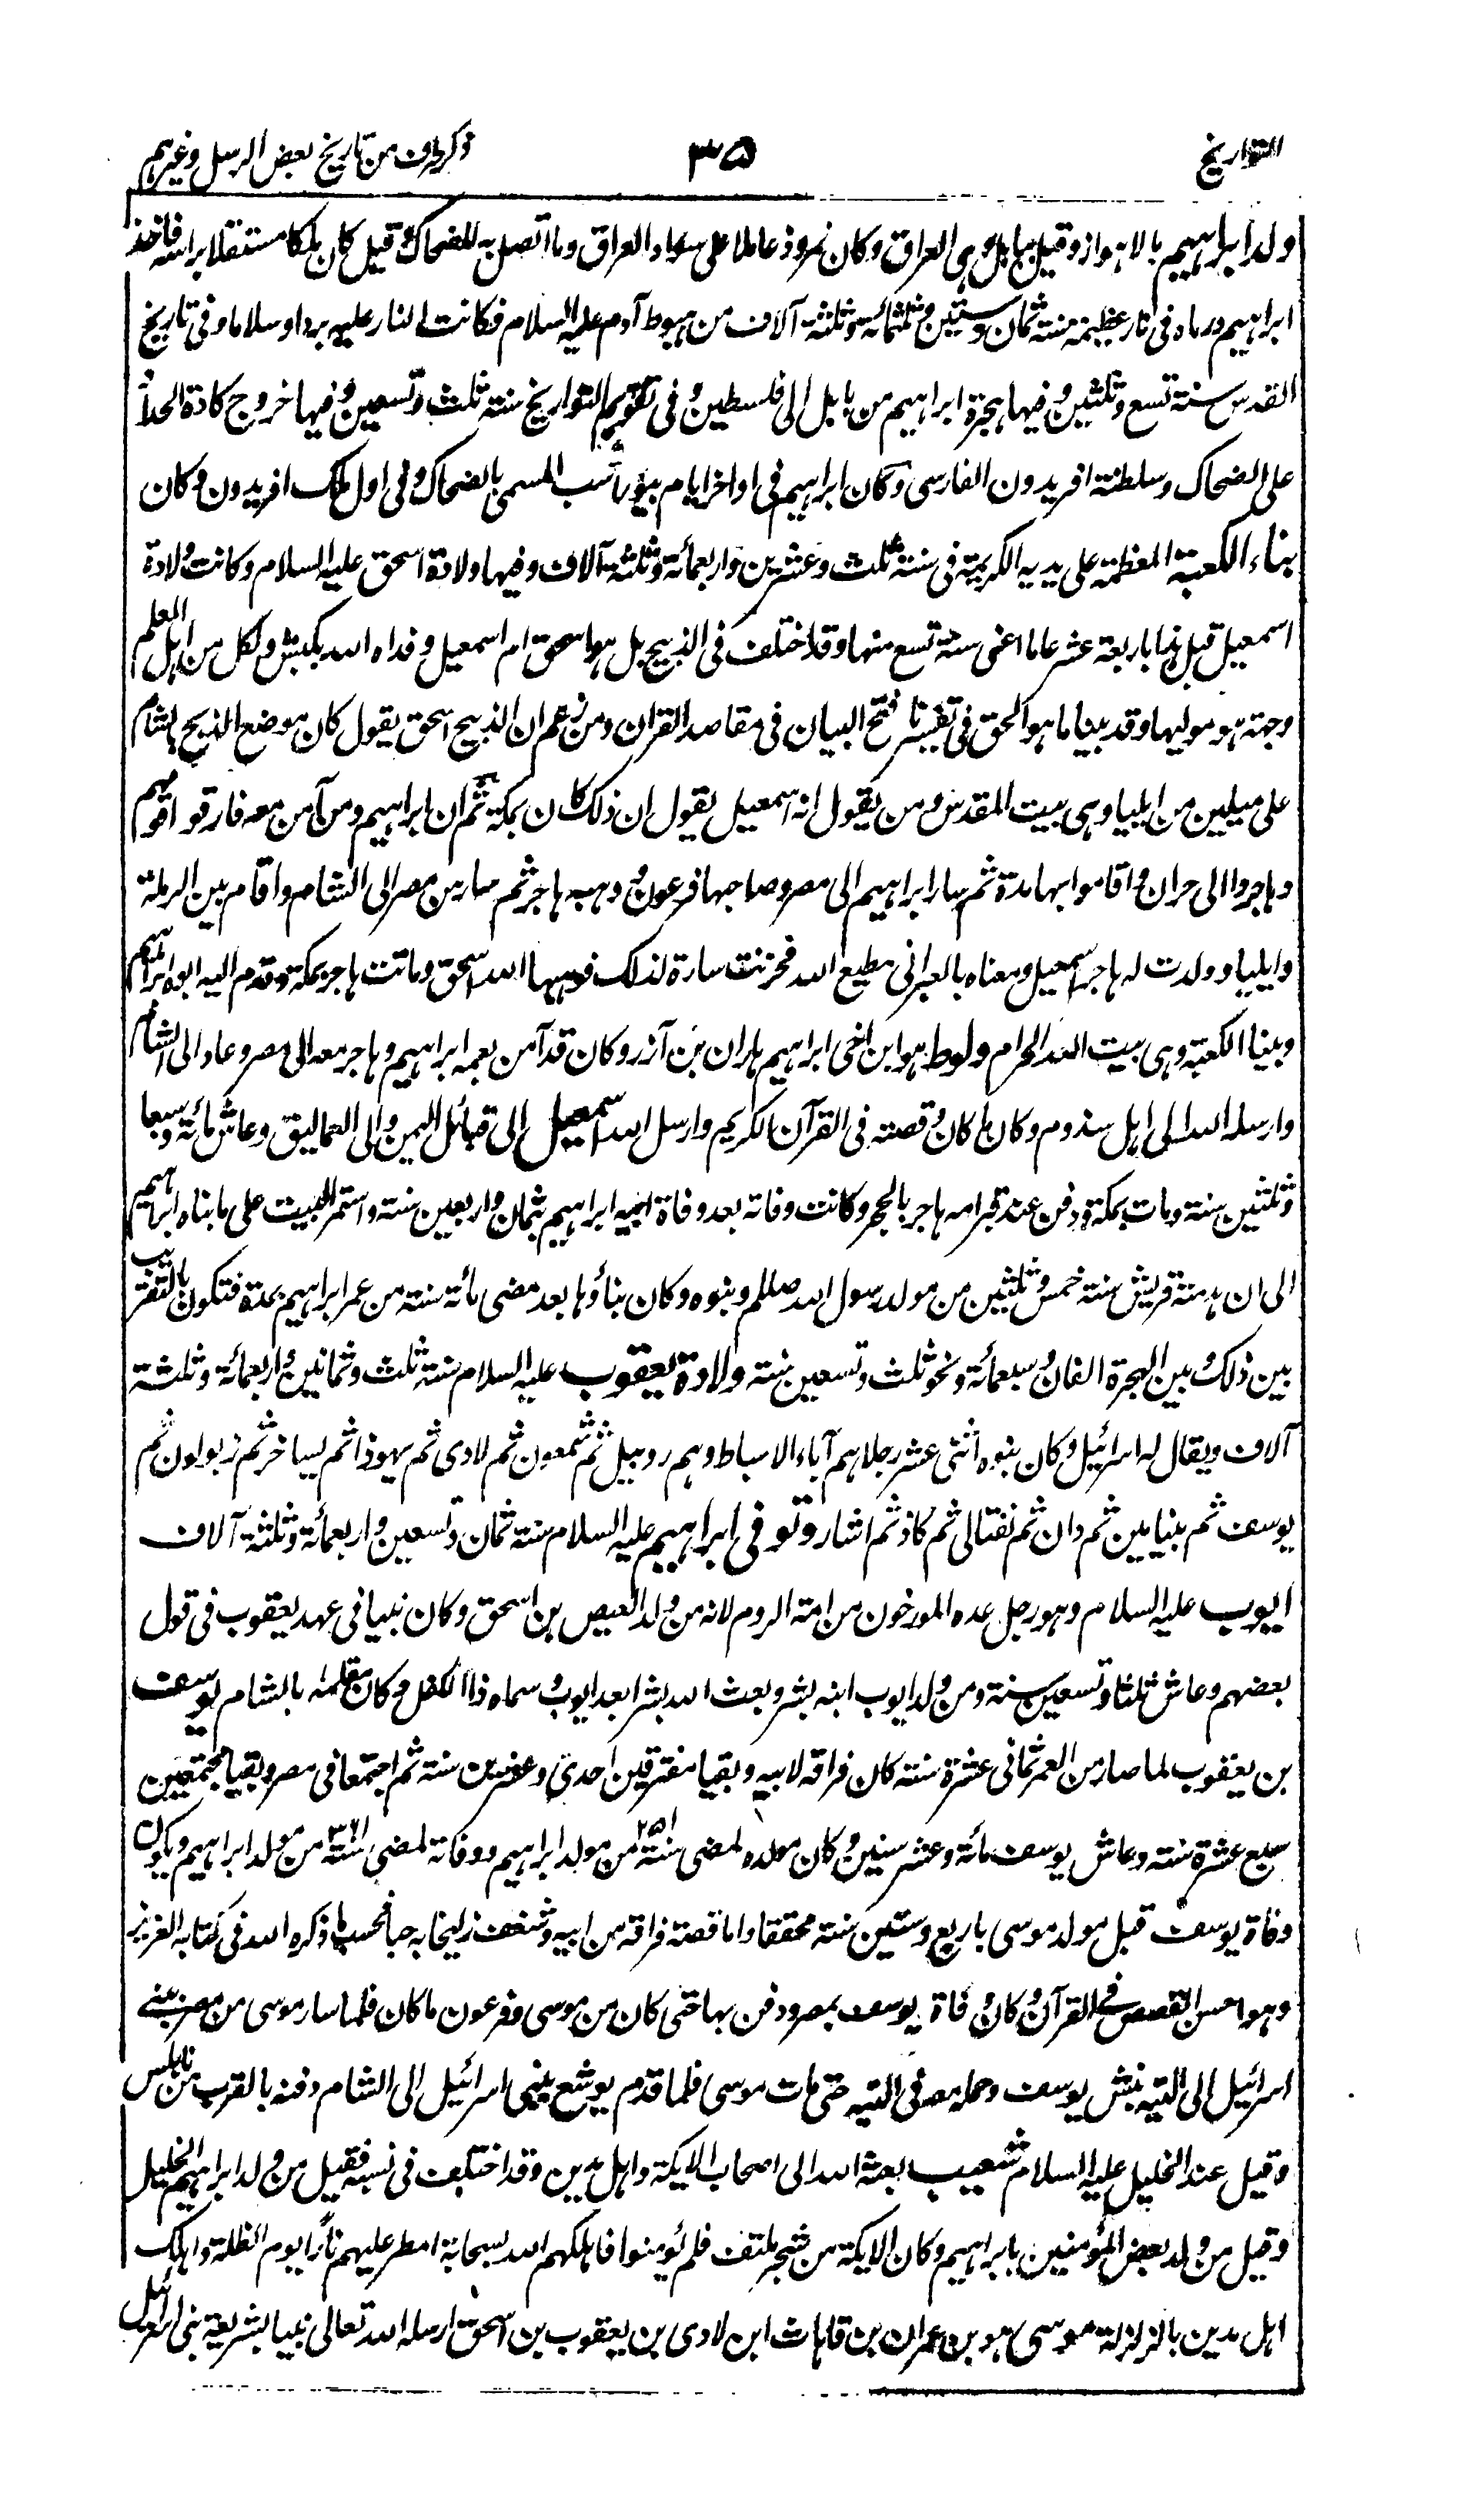 التواريخ ٣٥ ذكر طرف من تاريخ بعض الرسل وغيرهم
ولد ابراهيم بالاهواز وقيل ببابل وهي العراق وكان نمروذ عاملا على سواد العراق وما اتصل به للضحاك وقيل كان ملكا مستقلا براسه فاخذ
ابراهيم ورماه في نار عظيمة سنة ثمان وستين وثلثمائة وثلثة آلاف من هبوط آدم عليه السلام فكانت النار عليه بردا وسلاما وفي تاريخ
القدس سنة تسع وثلثين وفيها هجرة ابراهيم من بابل الى فلسطين وفي تقويم التواريخ سنة ثلث وتسعين وفيها خروج كادة الحداد
على الضحاك وسلطنة افريدون الفارسي وكان ابراهيم في اواخر ايام بيوراسب المسمى بالضحاك وفي اول ملك افريدون وكان
بناء الكعبة المعظمة على يديه الكريمة في سنة ثلث وعشرين واربعمائة وثلثة آلاف وفيها ولادة اسحق عليه السلام وكانت ولادة
اسمعيل قبل هذا باربعة عشر عاما اعني سنة تسع منها وقد اختلف في الذبيح هل هو اسحق ام اسمعيل وفداه الله بكبش ولكل من اهل العلم
وجهة هو موليها وقد بينا ما هو الحق في تفسيرنا فتح البيان في مقاصد القران ومن زعم ان الذبيح اسحق يقول كان موضع الذبح بالشام
على ميلين من ايليا وهي بيت المقدس ومن يقول انه اسمعيل يقول ان ذلك كان بمكة ثم ان ابراهيم ومن آمن معه فارقوا قومهم
وهاجروا الى حران واقاموا بها مدة ثم سار ابراهيم الى مصر وصاحبها فرعون ووهبه هاجر ثم سار من مصر الى الشام واقام بين الرملة
وايليا وولدت له هاجر اسمعيل ومعناه بالعبراني مطيع الله فحزنت سارة لذلك فوهبها الله اسحق وماتت هاجر بمكة وقدم اليه ابوه ابراهيم
وبنيا الكعبة وهي بيت الله الحرام ولوط هو ابن اخي ابراهيم هاران بن آزر وكان قد آمن بعمه ابراهيم وهاجر معه الى مصر وعاد الى الشام
وارسله الله الى اهل سدوم وكان ما كان وقصته في القرآن الكريم وارسل الله اسمعيل الى قبائل اليمن والى العماليق وعاش مائة وسبعا
وثلثين سنة ومات بمكة ودفن عند قبر امه هاجر بالحجر وكانت وفاته بعد وفاة ابيه ابراهيم بثمان واربعين سنة واستمر البيت على ما بناه ابراهيم
الى ان هدمته قريش سنة خمس وثلثين من مولد رسول الله صللم وبنوه وكان بناؤها بعد مضي مائة سنة من عمر ابراهيم بمدة فتكون بالتقريب
بين ذلك وبين الهجرة الفان وسبعمائة ونحو ثلث وتسعين سنة ولادة يعقوب عليه السلام سنة ثلث وثمانين واربعمائة وثلثة
آلاف ويقال له اسرائيل وكان بنوه اثنى عشر رجلا هم آباء الاسباط وهم روبيل ثم شمعون ثم لاوى ثم يهوذا ثم يساخر ثم زبولون ثم
يوسف ثم بنيامين ثم دان ثم نفتالى ثم كاذ ثم اشار وتوفي ابراهيم عليه السلام سنة ثمان وتسعين واربعمائة وثلثة آلاف
ايوب عليه السلام وهو رجل عده المورخون من امة الروم لانه من ولد العيص بن اسحق وكان نبيا في عهد يعقوب في قول
بعضهم وعاش ثلثا وتسعين سنة ومن ولد ايوب ابنه بشر وبعث الله بشرا بعد ايوب وسماه ذا الكفل وكان مقامه بالشام يوسف
بن يعقوب لما صار من العمر ثماني عشرة سنة كان فراقه لابيه وبقيا مفترقين احدى وعشرين سنة ثم اجتمعا في مصر وبقيا مجتمعين
سبع عشرة سنة وعاش يوسف مائة وعشر سنين وكان مولده لمضي سنة ٢٥١ من مولد ابراهيم ووفاته لمضي سنة ٣٦١ من مولد ابراهيم ويكون
وفاة يوسف قبل مولد موسى باربع وستين سنة محققا واما قصة فراقه من ابيه وشغف زليخا به حبا فحسب ما ذكره الله في كتابه العزيز
وهو احسن القصص في القرآن وكان وفاة يوسف بمصر ودفن بها حتى كان من موسى وفرعون ما كان فلما سار موسى من مصر ببنى
اسرائيل الى التيه نبش يوسف وحمله معه في التيه حتى مات موسى فلما قدم يوشع ببنى اسرائيل الى الشام دفنه بالقرب من نابلس
وقيل عند الخليل عليه السلام شعيب بعثه الله الى اصحاب الايكة واهل مدين وقد اختلف في نسبه فقيل من ولد ابراهيم الخليل
وقيل من ولد بعض المؤمنين بابراهيم وكان الايكة من شجر ملتف فلم يؤمنوا فاهلكهم الله بسحابة امطر عليهم نارا يوم الظلة واهلك
اهل مدين بالزلزلة موسى هو بن عمران بن قاهاث ابن لاوى بن يعقوب بن اسحق ارسله الله تعالى نبيا بشريعة بنى اسرائيل